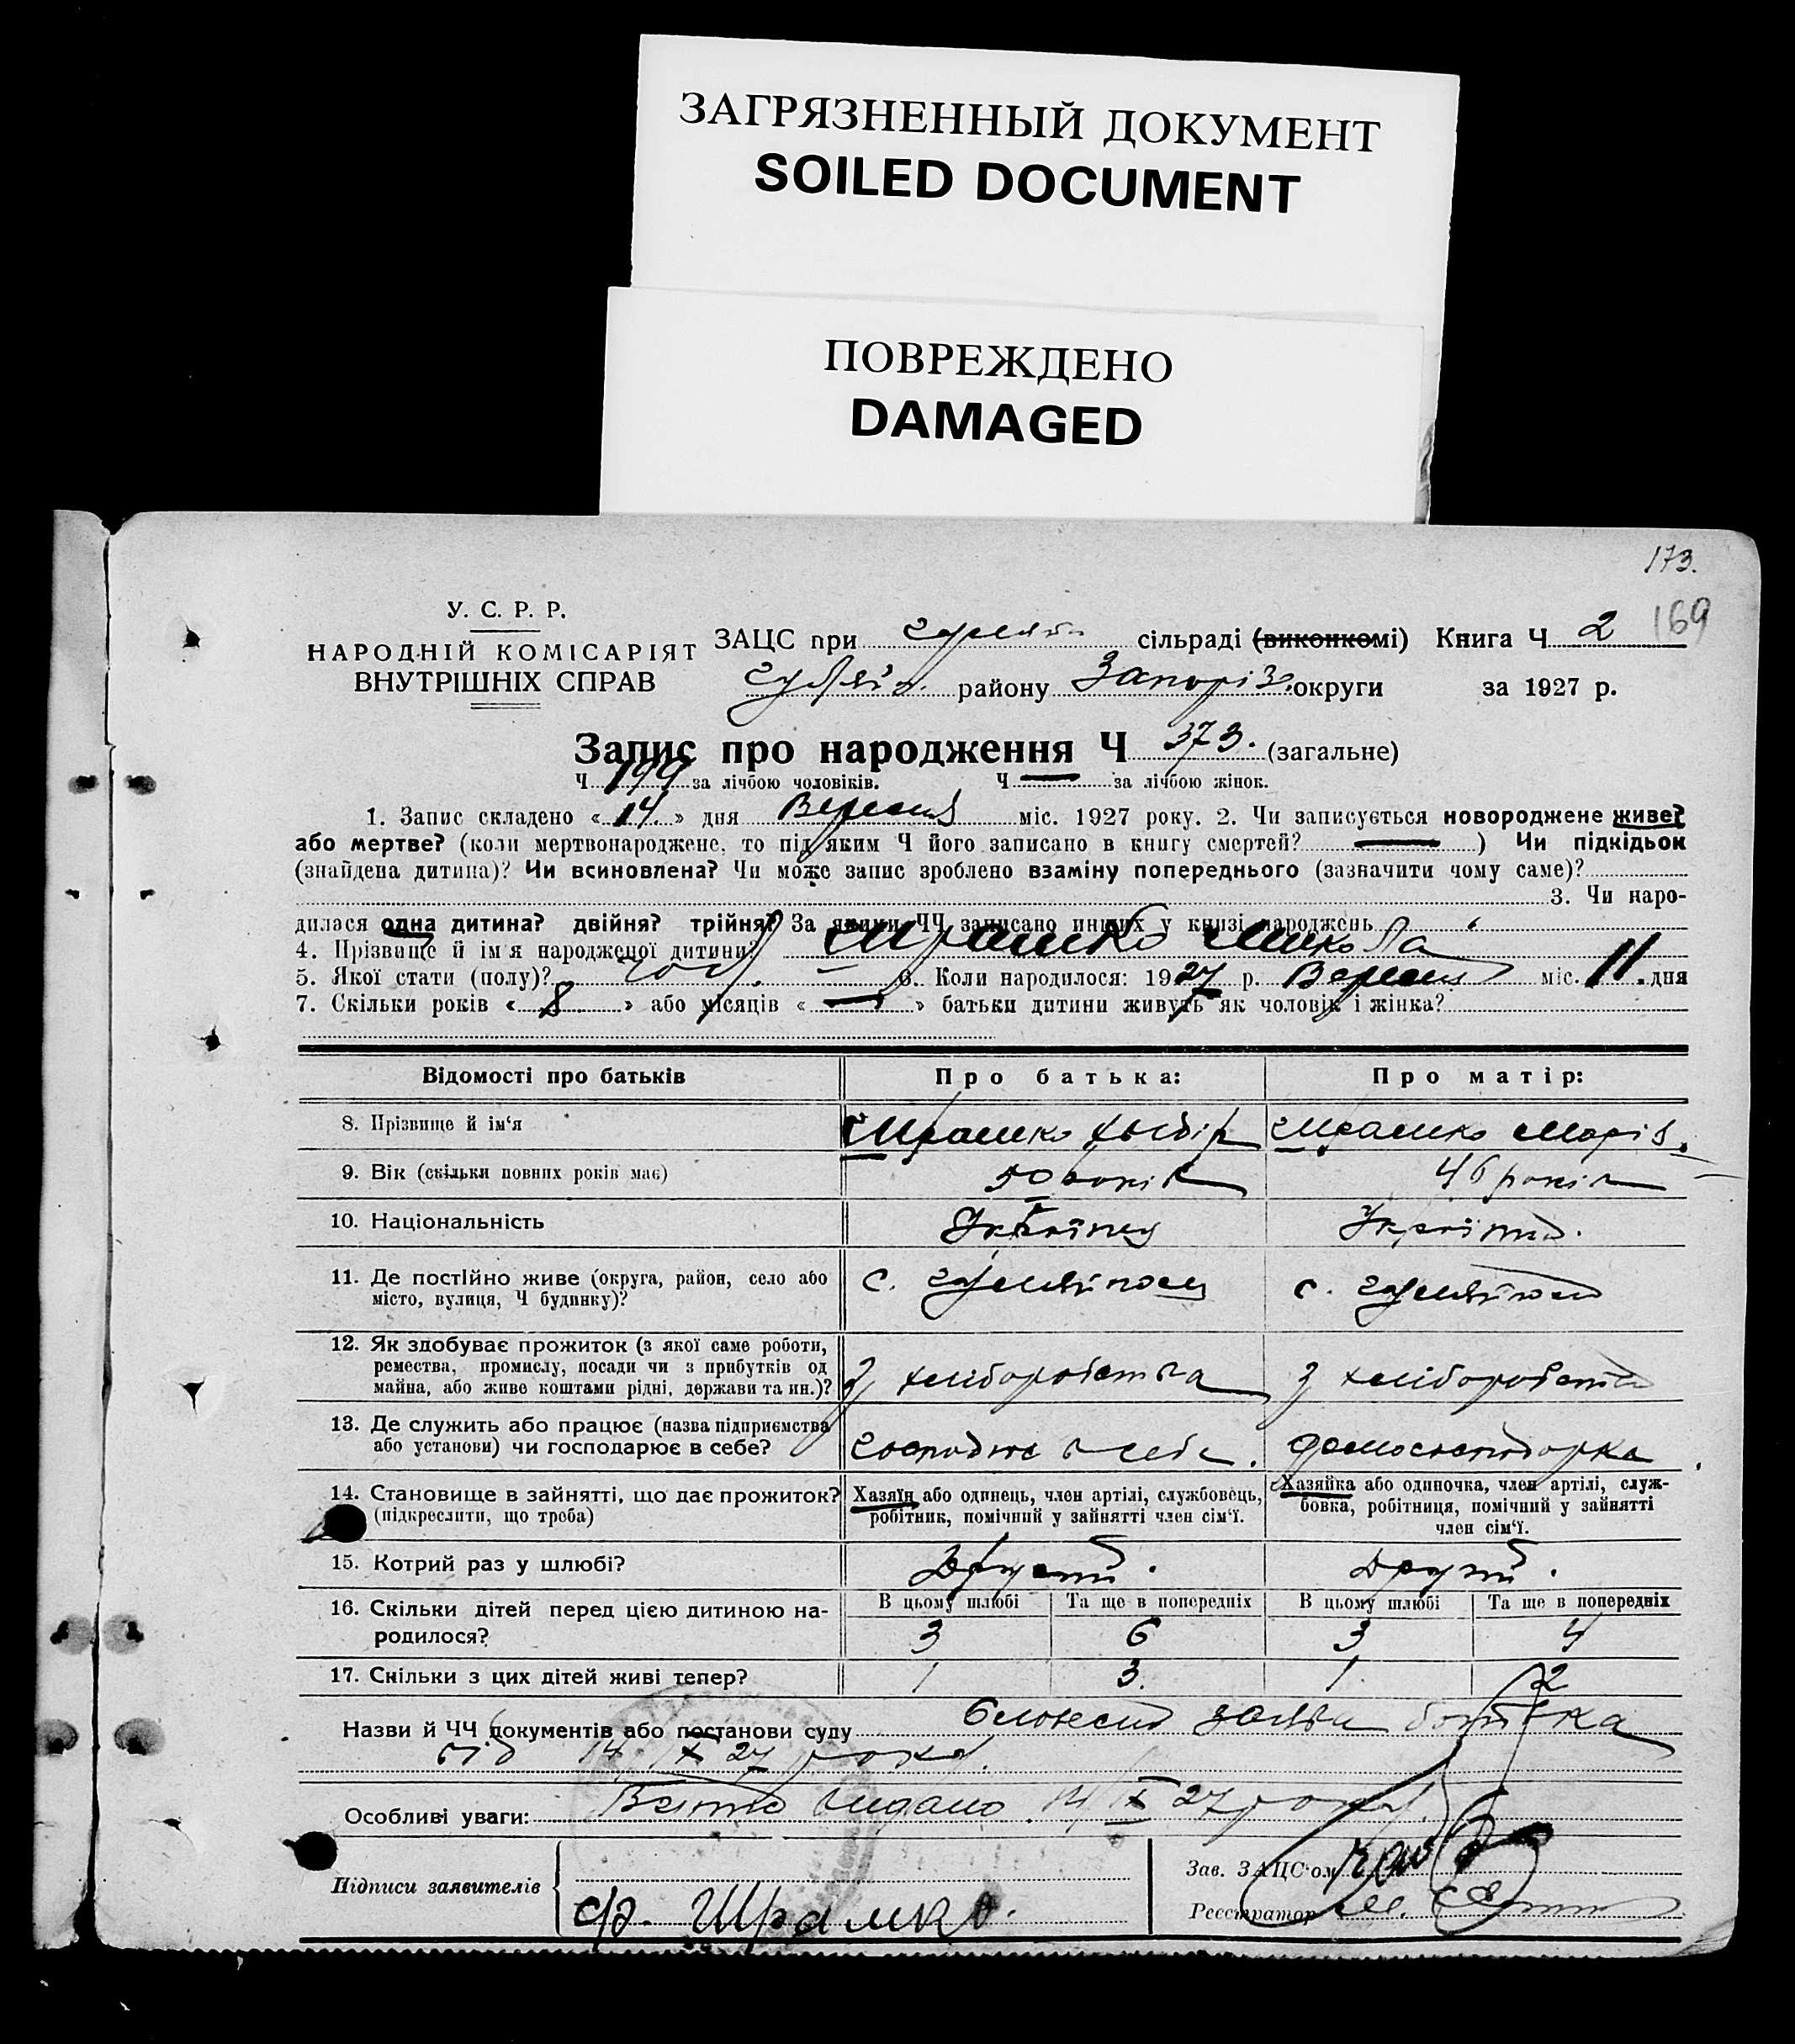 ЗАГРЯЗНЕННЫЙ ДОКУМЕНТ
SOILED DOCUMENT
ПОВРЕЖДЕНО
DAMAGED
173.
169
У. С. Р. Р.
НАРОДНІЙ КОМІСАРІЯТ
ВНУТРІШНІХ СПРАВ
ЗАЦС при сільраді (виконкомі) Книга Ч 2
району Запоріз. округи за 1927 р.
Запис про народження Ч 373. (загальне)
Ч 199 за лічбою чоловіків. Ч — за лічбою жінок.
1. Запис складено « 14 » дня Вересня міс. 1927 року. 2. Чи записується новороджене живе?
або мертве? (коли мертвонароджене, то під яким Ч його записано в книгу смертей? — ) Чи підкідьок
(знайдена дитина)? Чи всиновлена? Чи може запис зроблено взаміну попереднього (зазначити чому саме)?
3. Чи наро-
дилася одна дитина? двійня? трійня? За якими ЧЧ записано инших у книзі народжень
4. Прізвище й ім'я народженої дитини? Шрамко Микола
5. Якої стати (полу)? чол. — 6. Коли народилося: 1927 р. Вересня міс. 11 дня
7. Скільки років « 8 » або місяців « — » батьки дитини живуть як чоловік і жінка?
Відомості про батьків Про батька: Про матір:
8. Прізвище й ім'я Шрамко Хведір Шрамко Марія.
9. Вік (скільки повних років має) 50 років 46 років
10. Національність Українец Українка.
11. Де постійно живе (округа, район, село або
місто, вулиця, Ч будинку)? с. с.
12. Як здобуває прожиток (з якої саме роботи,
ремества, промислу, посади чи з прибутків од
майна, або живе коштами рідні, держави та ин.)? З хліборобства З хліборобства
13. Де служить або працює (назва підприємства
або установи) чи господарює в себе? в себе. домогосподарка
14. Становище в зайнятті, що дає прожиток?
(підкреслити, що троба)
Хазяїн або одинець, член артілі, службовець,
робітник, помічний у зайнятті член сім'ї.
Хазяйка або одиночка, член артілі, служ-
бовка, робітниця, помічний у зайнятті
член сім'ї.
15. Котрий раз у шлюбі? Другий. Другий.
16. Скільки дітей перед цією дитиною на-
родилося?
В цьому шлюбі Та ще в попередніх В цьому шлюбі Та ще в попередніх
3 6 3 4
17. Скільки з цих дітей живі тепер? 1 3. 1. 2
Назви й ЧЧ документів або постанови суду заява батька
від 14. IX 27 року.
Особливі уваги: видано. 14/IX 27 року.
Підписи заявителів
Зав. ЗАЦС'ом
ф. Шрамко.
Реєстратор